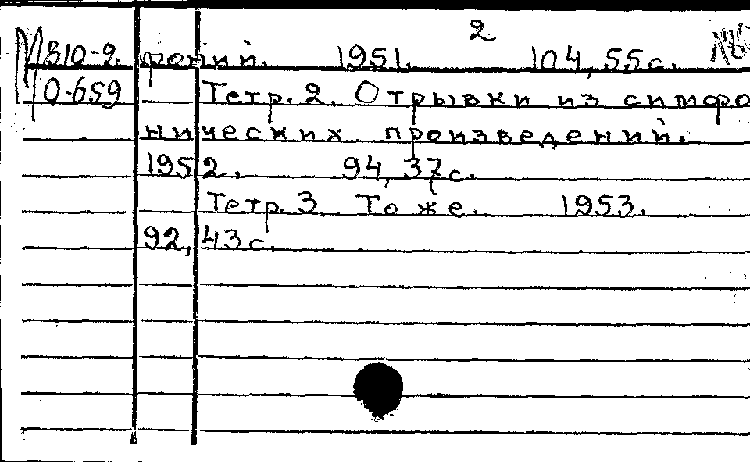 2
В10-2. роний. 1951. 104, 55 с.
О-659 Тетр. 2. Отрывки из симфо
нических произведений.
1952. 94, 37 с.
Тетр. 3 То же. 1953.
92, 43 с.